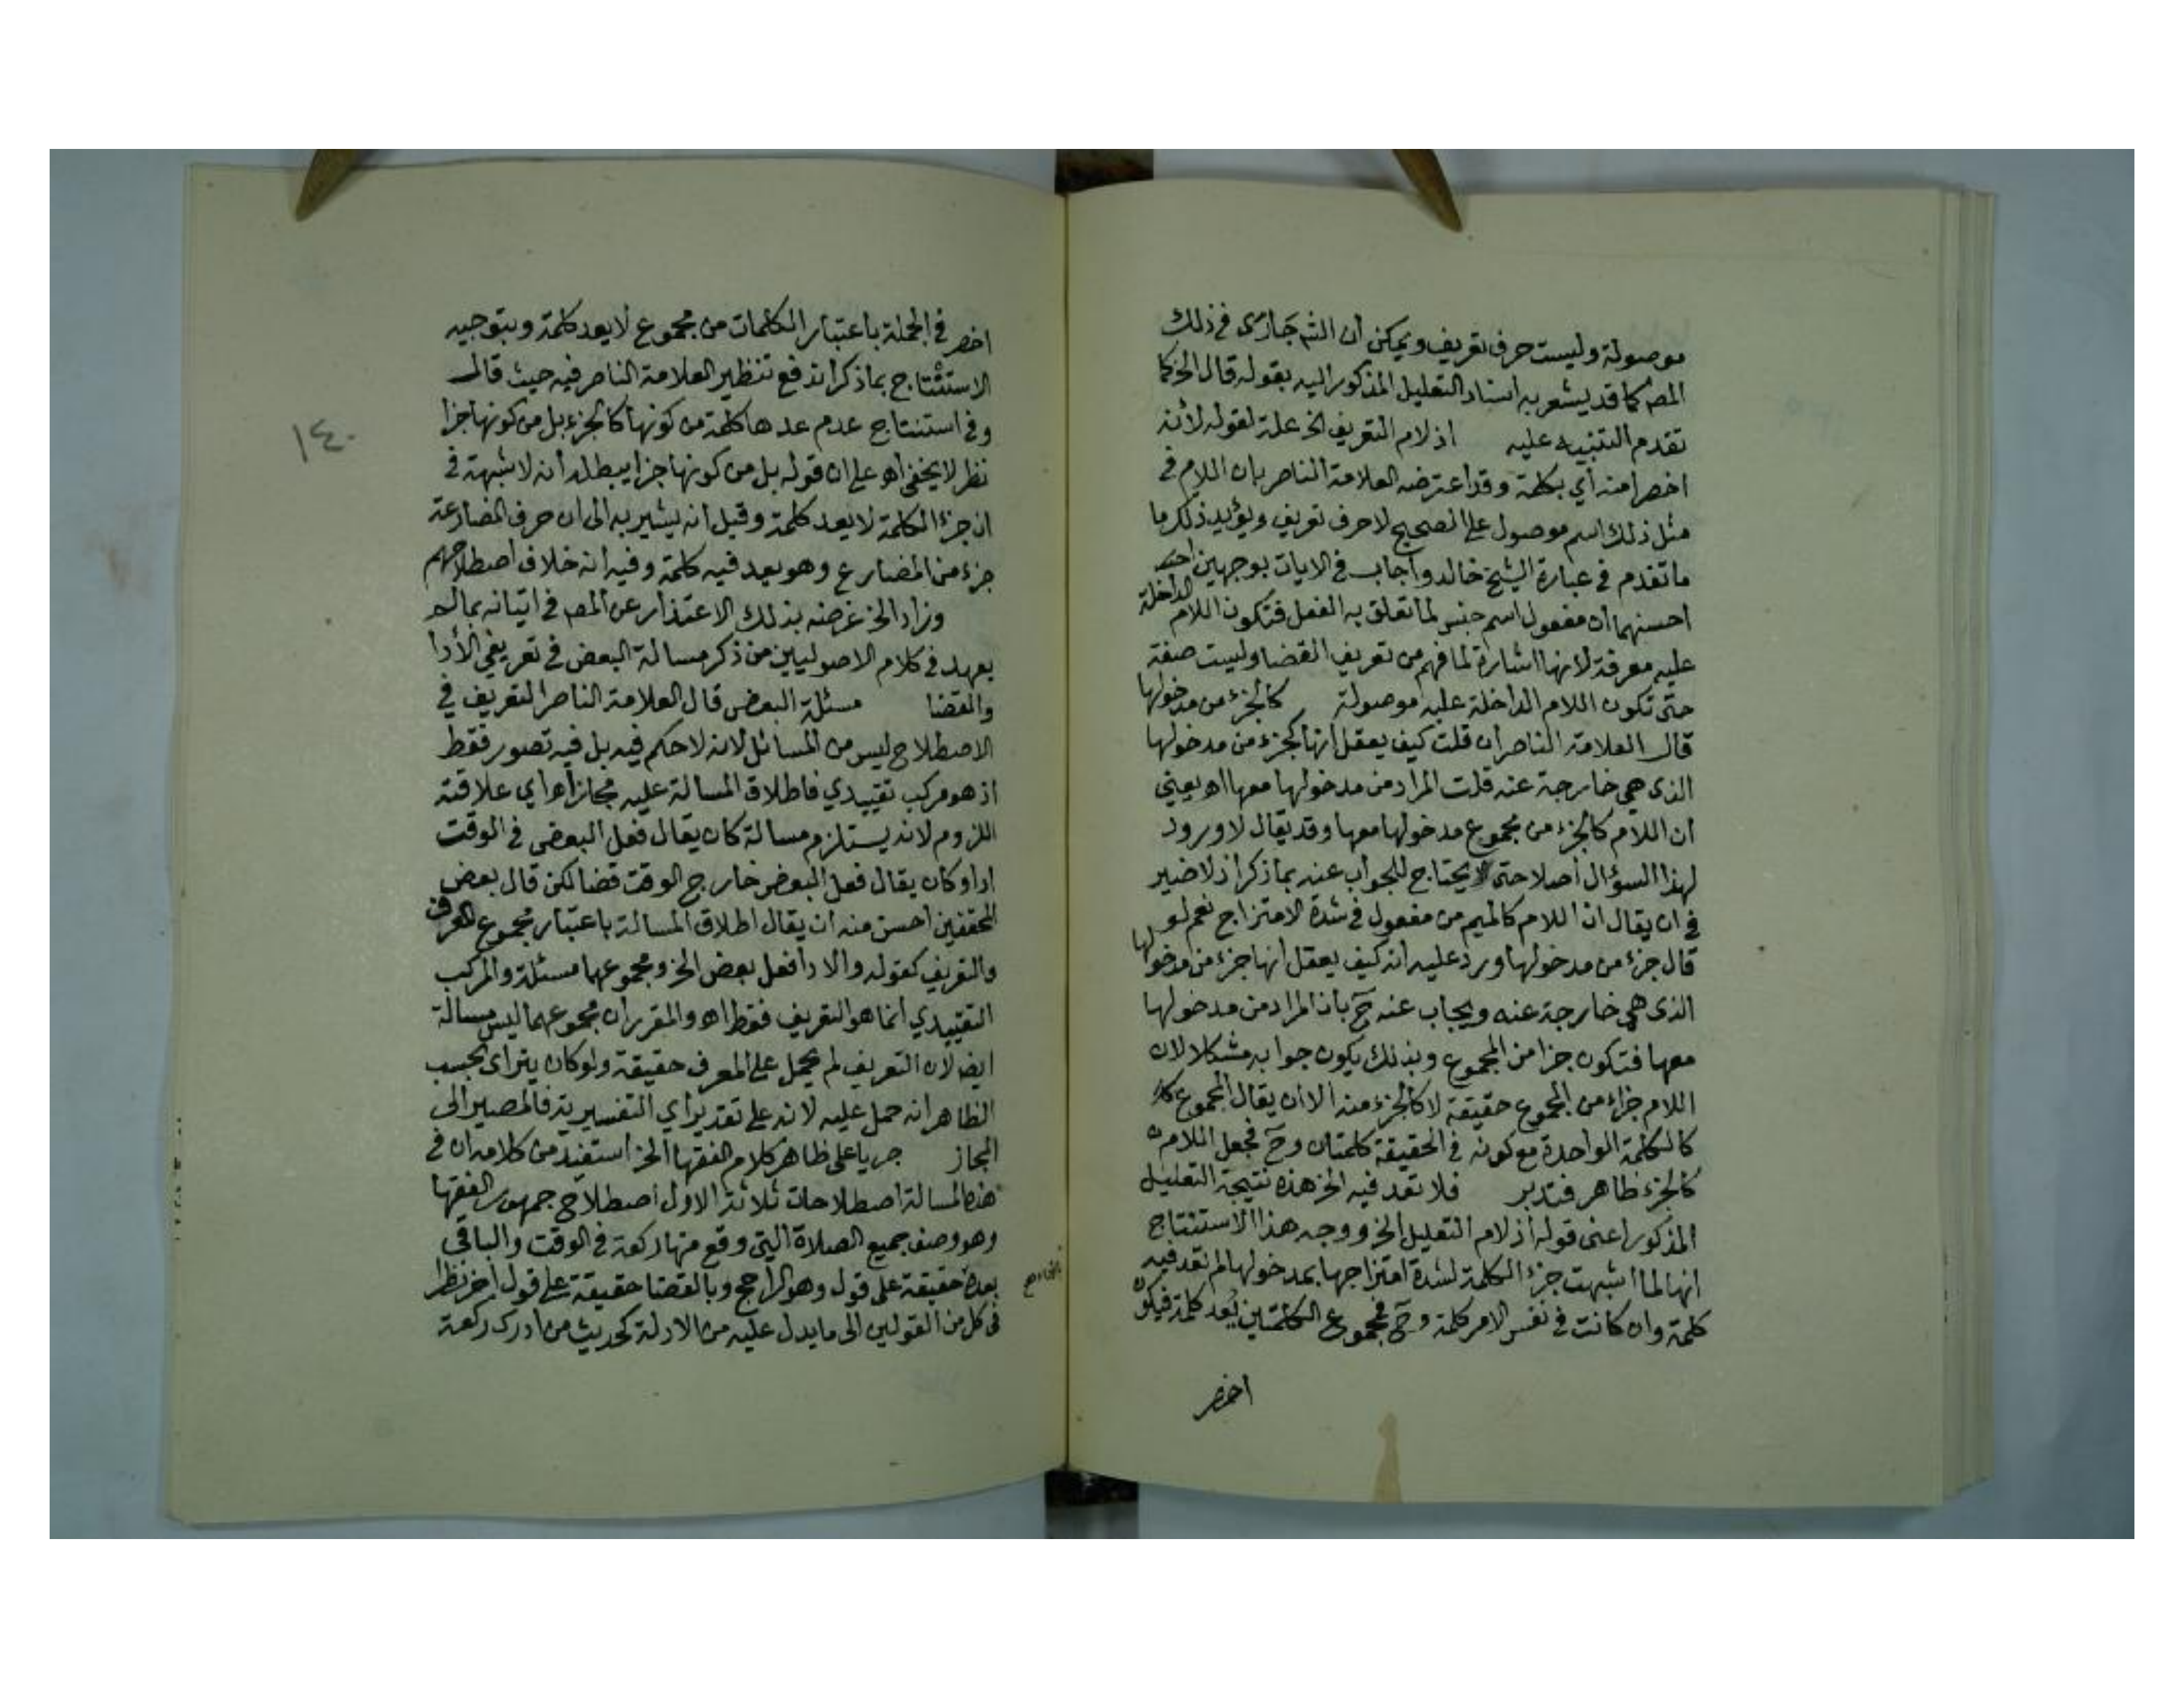 موصولة وليست حرف تعريف ويمكن ان الش جارى في ذلك
المص كما قد يشعر به اسناد التعليل المذكور اليه بقوله قال الخ كما
تقدم التنبيه عليه اذ لام التعريف الخ علة لقوله لأنه
اخصر منه أي بكلمة وقد اعترضه العلامة الناصر بان اللام في
مثل ذلك اسم موصول على الصحيح لا حرف تعريف ويؤيد ذلك ما
ما تقدم في عبارة الشيخ خالد وأجاب في الايات بوجهين
احسنهما ان مفعول اسم جنس لما تعلق به الفعل فتكون اللام الداخلة
عليه معرفة لانها اشارة لما فهم من تعريف القضا وليست صفة
حتى تكون اللام الداخلة عليه موصولة كالجزء من مدخولها
قال العلامة الناصر ان قلت كيف يعقل انها كجزء من مدخولها
الذى هي خارجة عنه قلت المراد من مدخولها معها اه يعني
أن اللام كالجزء من مجموع مدخولها معها وقد يقال لا ورود
لهذا السؤال أصلا حتى يحتاج للجواب عنه بما ذكر اذ لا ضير
في ان يقال ان اللام كالميم من مفعول في شدة الامتزاج نعم لو
قال جزء من مدخولها ورد عليه انه كيف يعقل انها جزء من مدخولها
الذى هي خارجة عنه ويجاب عنه ح بان المراد من مدخولها
معها فتكون جزا من المجموع وبذلك يكون جوابه مشكلا لان
اللام جزاء من المجموع حقيقة لا كالجزء منه الا ان يقال المجموع
كالكلمة الواحدة مع كونه في الحقيقة كلمتان وح فجعل اللام
كالجزء ظاهر فتدبر فلا تعد فيه الخ هذه نتيجة التعليل
المذكور اعنى قوله اذ لام التعليل الخ ووجه هذا الاستنتاج
انها لما اشبهت جزء الكلمة لشدة امتزاجها بمدخولها لم تعد فيه
كلمة وان كانت في نفس الامر كلمة وح فمجموع الكلمتين يعد كلمة فيكون
اخصر
اخصر في الجملة باعتبار الكلمات من مجموع لا يعد كلمة وبتوجيه
الاستنتاج بما ذكر اندفع تنظير العلامة الناصر فيه حيث قال
وفي استنتاج عدم عدها كلمة من كونها كالجزء بل من كونها جزا
نظر لا يخفى اه على ان قوله بل من كونها جزا يبطله أنه لا شبهة في
ان جزء الكلمة لا يعد كلمة وقيل انه يشير به الى ان حرف المضارعة
جزء من المضارع وهو يعد فيه كلمة وفيه انه خلاف اصطلاحهم
وزاد الخ غرضه بذلك الاعتذار عن المص في اتيانه بما لم
يعهد في كلام الاصوليين من ذكر مسالة البعض في تعريفي الأدا
والقضا مسئلة البعض قال العلامة الناصر التعريف في
الاصطلاح ليس من المسائل لانه لا حكم فيه بل فيه تصور فقط
اذ هو مركب تقييدي فاطلاق المسالة عليه مجاز اه اي علاقته
اللزوم لانه يستلزم مسالة كان يقال فعل البعض في الوقت
ادا وكان يقال فعل البعض خارج الوقت قضا لكن قال بعض
المحققين احسن منه ان يقال اطلاق المسالة باعتبار مجموع المعرف
والتعريف كقوله والادا فعل بعض الخ ومجموعهما مسئلة والمركب
التقييدي انما هو التعريف فقط اه والمقرر ان مجموعهما ليس مسالة
ايضا لان التعريف لم يحمل على المعرف حقيقة ولو كان يتراى بحسب
الظاهر انه حمل عليه لانه على تقدير أي التفسيرية فالمصير الى
المجاز جريا على ظاهر كلام الفقها الخ استفيد من كلامه ان في
هذه المسالة اصطلاحات ثلاثة الاول اصطلاح جمهور الفقها
وهو وصف جميع الصلاة التي وقع منها ركعة في الوقت والباقي
بعده حقيقة على قول وهو الراجح وبالقضا حقيقة على قول اخر نظرا
في كل من القولين الى ما يدل عليه من الادلة كحديث من ادرك ركعة
١٤٠